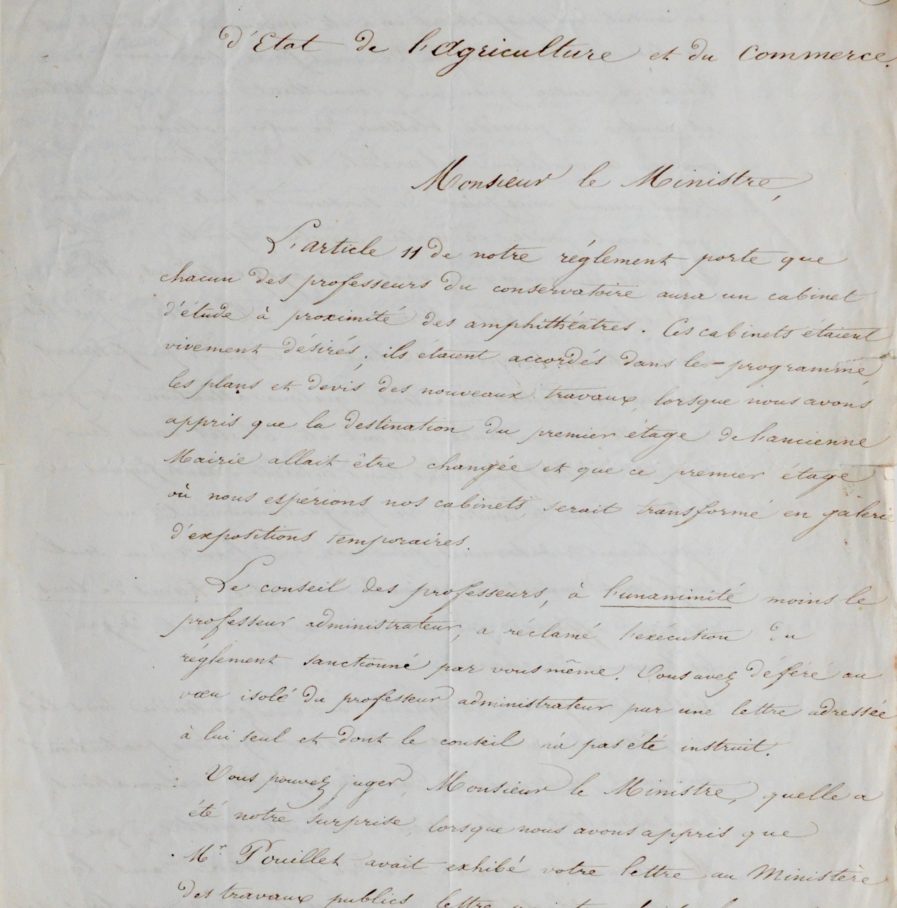 d'Etat de l'Agriculture et du Commerce.
Monsieur le Ministre,
L'article 11 de notre réglement porte que
chacun des professeurs du conservatoire aura un cabinet
d'étude à proximité des amphithéatres. Ces cabinets étaient
vivement désirés; ils étaient accordés dans le programme,
les plans et devis des nouveaux travaux, lorsque nous avons
appris que la destination du premier étage de l'ancienne
Mairie allait être changée et que ce premier étage
où nous espérions nos cabinets, serait transformé en galerie
d'expositions temporaires.
Le conseil des professeurs, à l'unanimité moins le
professeur administrateur, a réclamé l'exécution du
réglement sanctionné par vous même. Vous avez déféré au
vœu isolé du professeur administrateur par une lettre adressée
à lui seul et dont le conseil n'a pas été instruit.
Vous pouvez juger, Monsieur le Ministre, quelle a
été notre surprise, lorsque nous avons appris que
Mr Pouillet avait exhibé votre lettre au Ministère
des travaux publics lettre